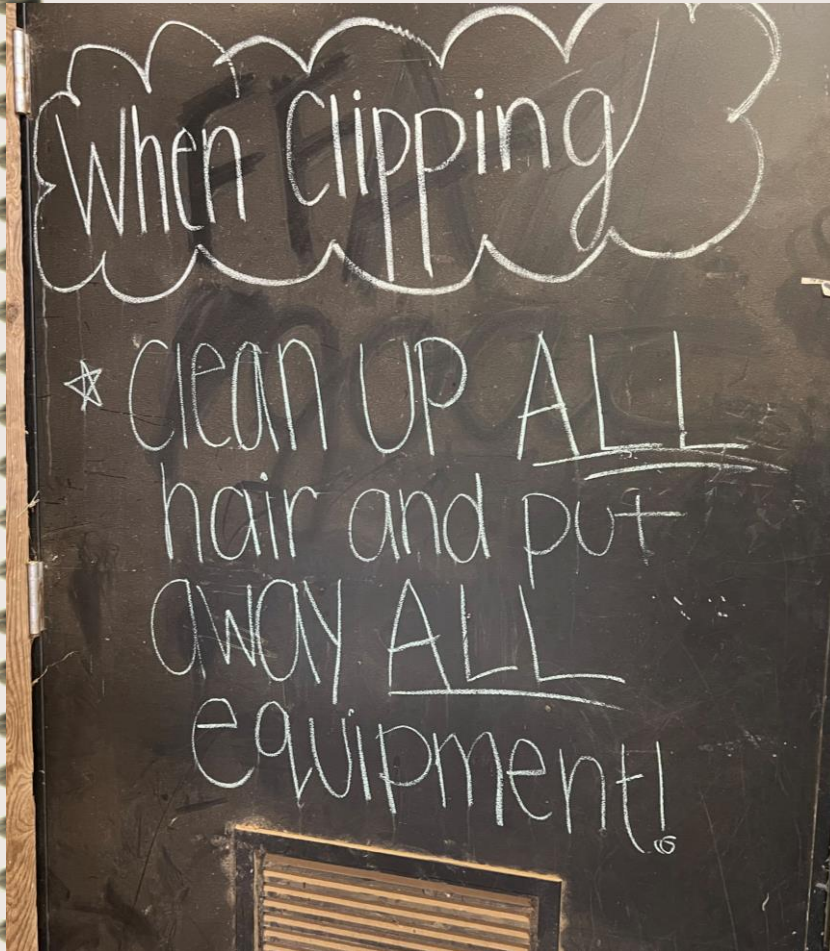 When Clipping
☆ Clean UP ALL
hair and put
away ALL
equipment!